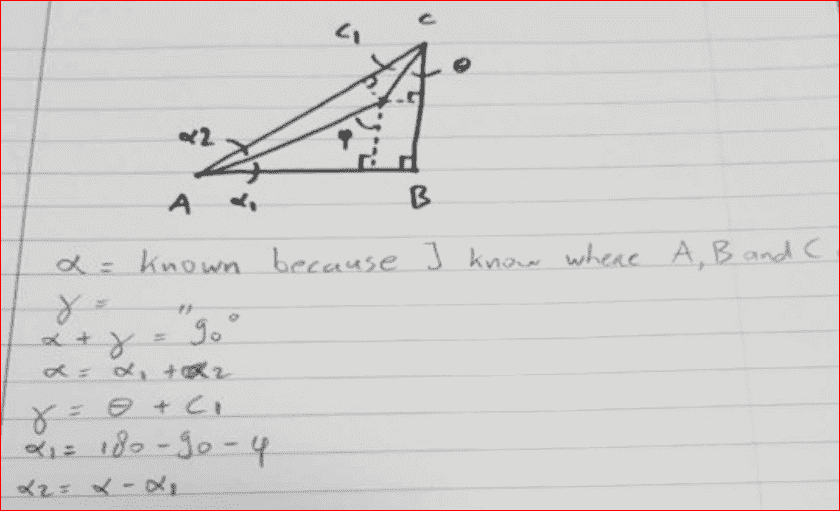 C
C₁
θ
α2
φ
A
α₁
B
α = known because I know where A, B and C
γ = "
α + γ = 90°
α = α₁ + α2
γ = θ + C₁
α₁ = 180 - 90 - φ
α2 = α - α₁